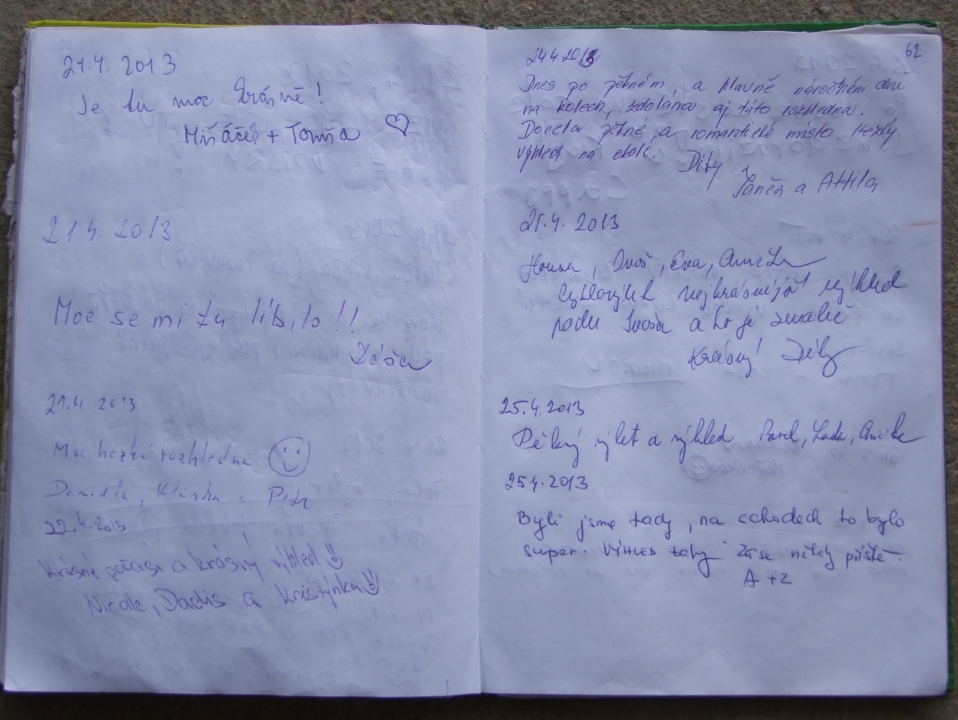 21.4. 2013
Je tu moc krásně!
Misáček + Tomša
21.4. 2013
Moc se mi tu líbilo!!
Zdeňa
21.4 2013
Moc hezká rozhledna
Daniela, Klárka a Petr
22.4.2013
Krásné počasí a krásný výhled!
Nicole, Dadis a Kristýnka
62
24.4.2013
Dnes po pěkném, a hlavně náročném dni
na kolech, zdolána aj táto rozhledna.
Docela pěkné a romantické místo. Hezký
výhled na okolí. Díky
Janča a Attila
25.4. 2013
Honza, Eva, Anežka
nejkrásnější výhled
a to je
Krásný
25.4.2013
Pěkný výlet a výhled Pavel, Lada,
25.4.2013
Byli jsme tady, na schodech to bylo
super. VÝHLED taky zase někdy příště.
A + Z